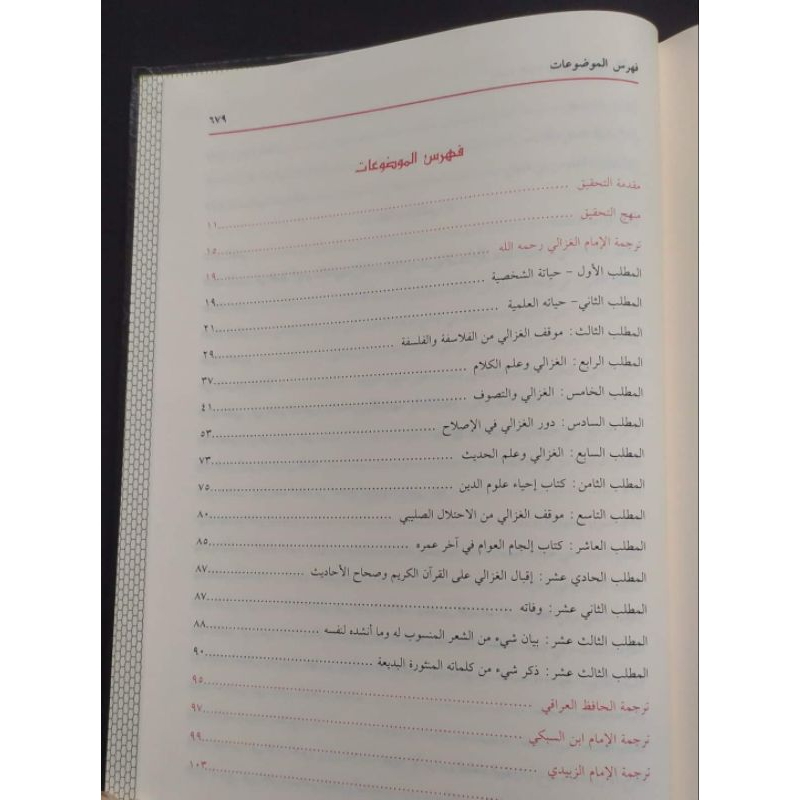 فهرس الموضوعات
٦٧٩
فهرس الموضوعات
مقدمة التحقيق ............ ١١
منهج التحقيق ............ ١٥
ترجمة الإمام الغزالي رحمه الله ............ ١٩
المطلب الأول - حياتة الشخصية ............ ١٩
المطلب الثاني- حياته العلمية ............ ٢١
المطلب الثالث: موقف الغزالي من الفلاسفة والفلسفة ............ ٢٩
المطلب الرابع: الغزالي وعلم الكلام ............ ٣٧
المطلب الخامس: الغزالي والتصوف ............ ٤١
المطلب السادس: دور الغزالي في الإصلاح ............ ٥٣
المطلب السابع: الغزالي وعلم الحديث ............ ٧٣
المطلب الثامن: كتاب إحياء علوم الدين ............ ٧٥
المطلب التاسع: موقف الغزالي من الاحتلال الصليبي ............ ٨٠
المطلب العاشر: كتاب إلجام العوام في آخر عمره ............ ٨٥
المطلب الحادي عشر: إقبال الغزالي على القرآن الكريم وصحاح الأحاديث ............ ٨٧
المطلب الثاني عشر: وفاته ............ ٨٧
المطلب الثالث عشر: بيان شيء من الشعر المنسوب له وما أنشده لنفسه ............ ٨٨
المطلب الثالث عشر: ذكر شيء من كلماته المنثورة البديعة ............ ٩٠
ترجمة الحافظ العراقي ............ ٩٥
ترجمة الإمام ابن السبكي ............ ٩٧
ترجمة الإمام الزبيدي ............ ٩٩
١٠٣